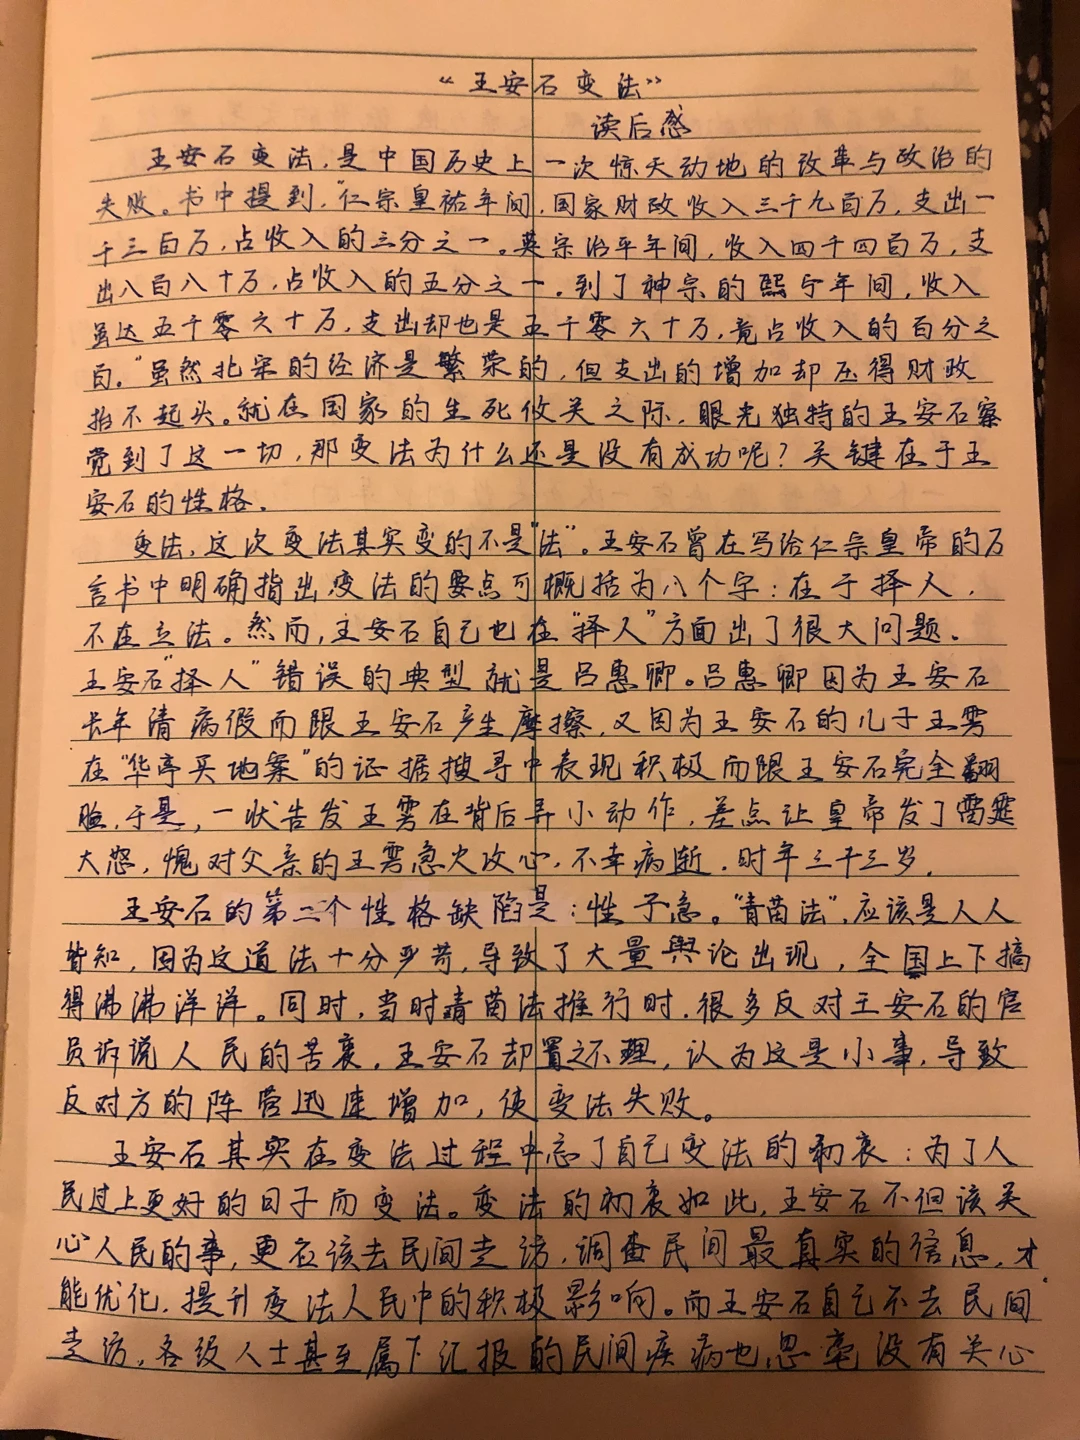 “王安石变法”
读后感
王安石变法，是中国历史上一次惊天动地的改革与政治的
失败。书中提到，“仁宗皇祐年间，国家财政收入三千九百万，支出一
千三百万，占收入的三分之一。英宗治平年间，收入四千四百万，支
出八百八十万，占收入的五分之一。到了神宗的熙宁年间，收入
虽达五千零六十万，支出却也是五千零六十万，竟占收入的百分之
百。”虽然北宋的经济是繁荣的，但支出的增加却压得财政
抬不起头。就在国家的生死攸关之际，眼光独特的王安石察
觉到了这一切，那变法为什么还是没有成功呢？关键在于王
安石的性格。
变法，这次变法其实变的不是“法”。王安石曾在写给仁宗皇帝的万
言书中明确指出变法的要点可概括为八个字：在于择人，
不在立法。然而，王安石自己也在“择人”方面出了很大问题。
王安石“择人”错误的典型就是吕惠卿。吕惠卿因为王安石
长年请病假而跟王安石产生摩擦，又因为王安石的儿子王雱
在“华亭买地案”的证据搜寻中表现积极而跟王安石完全翻
脸，于是，一状告发王雱在背后弄小动作，差点让皇帝发了雷霆
大怒，愧对父亲的王雱急火攻心，不幸病逝，时年三十三岁。
王安石的第二个性格缺陷是：性子急。“青苗法”，应该是人人
皆知，因为这道法十分严苛，导致了大量舆论出现，全国上下搞
得沸沸洋洋。同时，当时青苗法推行时，很多反对王安石的官
员诉说人民的苦衷，王安石却置之不理，认为这是小事，导致
反对方的阵营迅速增加，使变法失败。
王安石其实在变法过程中忘了自己变法的初衷：为了人
民过上更好的日子而变法。变法的初衷如此，王安石不但该关
心人民的事，更应该去民间走访，调查民间最真实的信息，才
能优化，提升变法人民中的积极影响。而王安石自己不去民间
走访，各级人士甚至属下汇报的民间疾病也丝毫没有关心